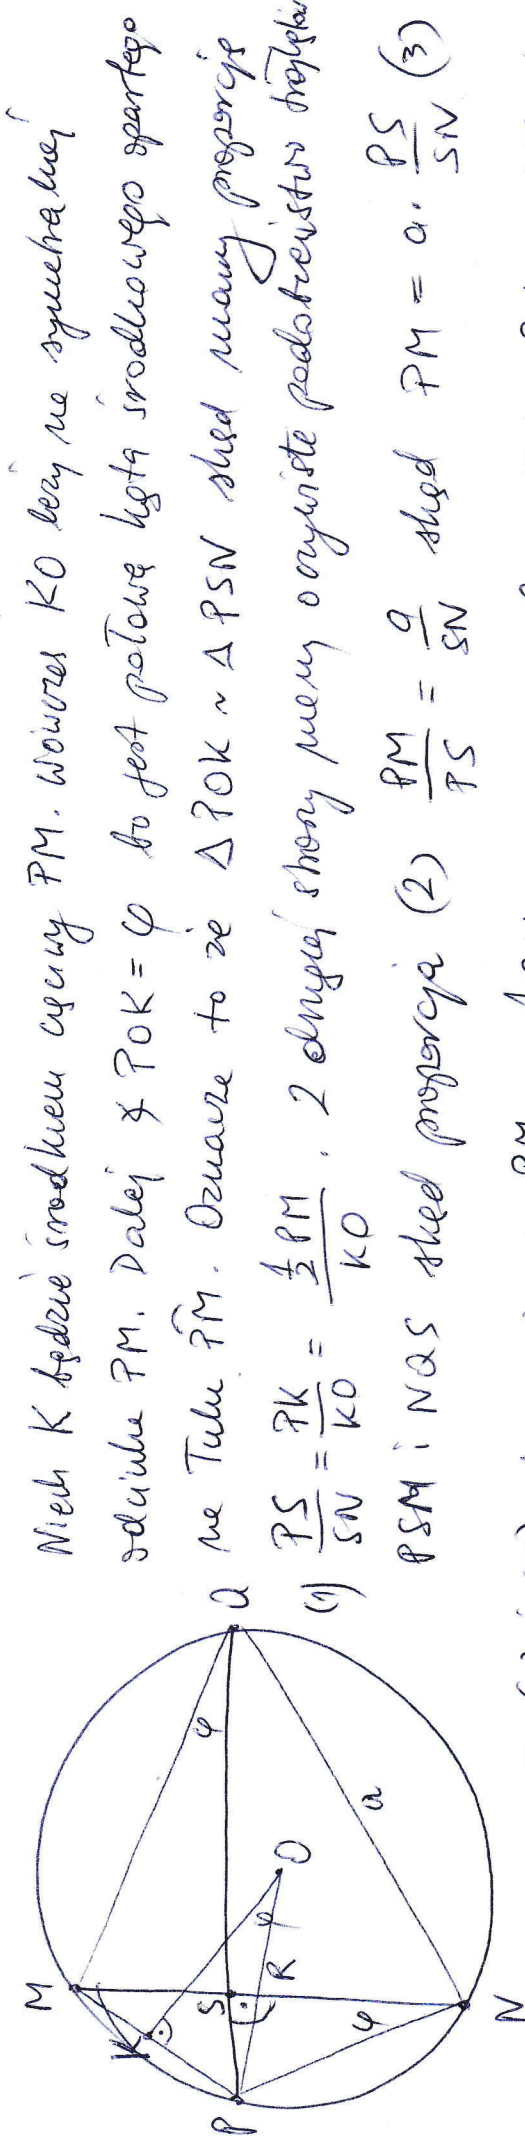 Niech K będzie środkiem cięciwy PM. Wówczas KO leży na symetralnej
odcinka PM. Dalej ∢ POK = φ bo jest połową kąta środkowego opartego
na łuku PM. Oznacza to że △POK ~ △PSN skąd mamy proporcję
(1) PS/SN = PK/KO = ½PM/KO. Z drugiej strony mamy oczywiste podobieństwo trójkątów
PSM i NQS skąd proporcja (2) PM/PS = a/SN skąd PM = a · PS/SN (3)
M
K
P
S
R
O
Q
N
φ
φ
φ
a